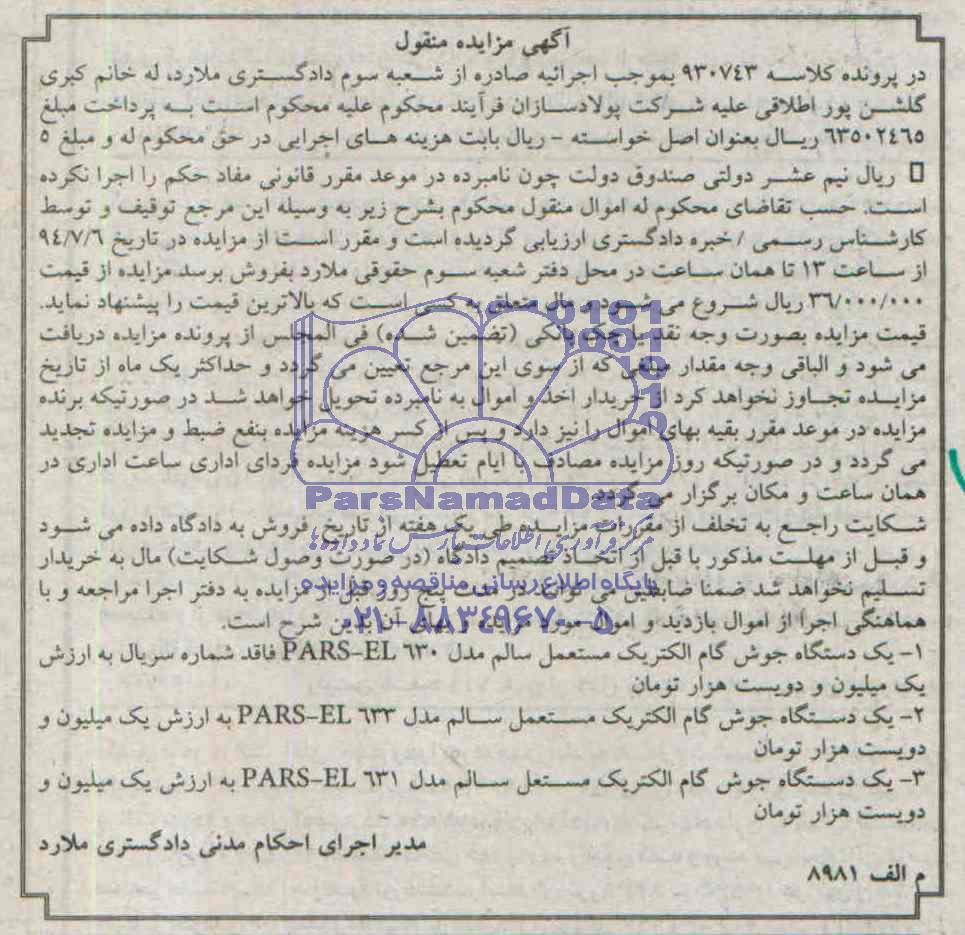 آگهی مزایده منقول
در پرونده کلاسه ۹۳۰۷۴۳ بموجب اجرائیه صادره از شعبه سوم دادگستری ملارد، له خانم کبری
گلشن پور اطلاقی علیه شرکت پولادسازان فرآیند محکوم علیه محکوم است به پرداخت مبلغ
۶۳۵۰۲۴۶۵ ریال بعنوان اصل خواسته - ریال بابت هزینه های اجرایی در حق محکوم له و مبلغ ۵
▯ ریال نیم عشر دولتی صندوق دولت چون نامبرده در موعد مقرر قانونی مفاد حکم را اجرا نکرده
است. حسب تقاضای محکوم له اموال منقول محکوم بشرح زیر به وسیله این مرجع توقیف و توسط
کارشناس رسمی / خبره دادگستری ارزیابی گردیده است و مقرر است از مزایده در تاریخ ۹۴/۷/۶
از ساعت ۱۳ تا همان ساعت در محل دفتر شعبه سوم حقوقی ملارد بفروش برسد مزایده از قیمت
۳۶/۰۰۰/۰۰۰ ریال شروع می شود و مال متعلق به کسی است که بالاترین قیمت را پیشنهاد نماید.
قیمت مزایده بصورت وجه نقد یا چک بانکی (تضمین شده) فی المجلس از برونده مزایده دریافت
می شود و الباقی وجه مقدار مبلغی که از سوی این مرجع تعیین می گردد و حداکثر یک ماه از تاریخ
مزایده تجاوز نخواهد کرد از خریدار اخذ و اموال به نامبرده تحویل خواهد شد در صورتیکه برنده
مزایده در موعد مقرر بقیه بهای اموال را نیز دارد و پس از کسر هزینه مزایده بنفع ضبط و مزایده تجدید
می گردد و در صورتیکه روز مزایده مصادف با ایام تعطیل شود مزایده فردای اداری ساعت اداری در
همان ساعت و مکان برگزار می گردد.
ParsNamadData
شکایت راجع به تخلف از مقررات مزایده طی یک هفته از تاریخ فروش به دادگاه داده می شود
مرکز فرآوری اطلاعات پارس نماد داده ها
و قبل از مهلت مذکور با قبل از اتخاذ تصمیم دادگاه (در صورت وصول شکایت) مال به خریدار
پایگاه اطلاع رسانی مناقصه و مزایده
تسلیم نخواهد شد ضمنا ضابطین می توانند در مدت پنج روز قبل از مزایده به دفتر اجرا مراجعه و با
۰۲۱-۸۸۳۴۹۶۷۰-۵
هماهنگی اجرا از اموال بازدید و اموال مورد مزایده و بهای آن بدین شرح است.
۱- یک دستگاه جوش گام الکتریک مستعمل سالم مدل PARS-EL ۶۳۰ فاقد شماره سریال به ارزش
یک میلیون و دویست هزار تومان
۲- یک دستگاه جوش گام الکتریک مستعمل سالم مدل PARS-EL ۶۳۳ به ارزش یک میلیون و
دویست هزار تومان
۳- یک دستگاه جوش گام الکتریک مستعل سالم مدل PARS-EL ۶۳۱ به ارزش یک میلیون و
دویست هزار تومان
مدیر اجرای احکام مدنی دادگستری ملارد
م الف ۸۹۸۱